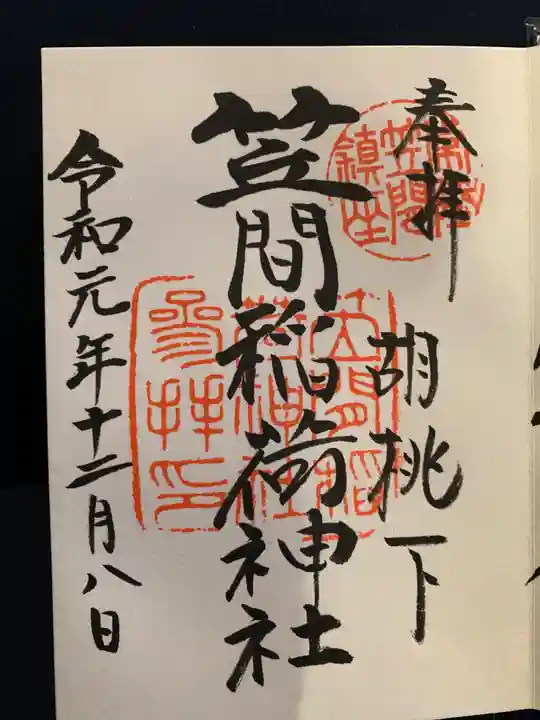 奉拝
胡桃下
笠間稲荷神社
令和元年十二月八日
笠間
鎮座
笠間稲
荷神社
参拝印